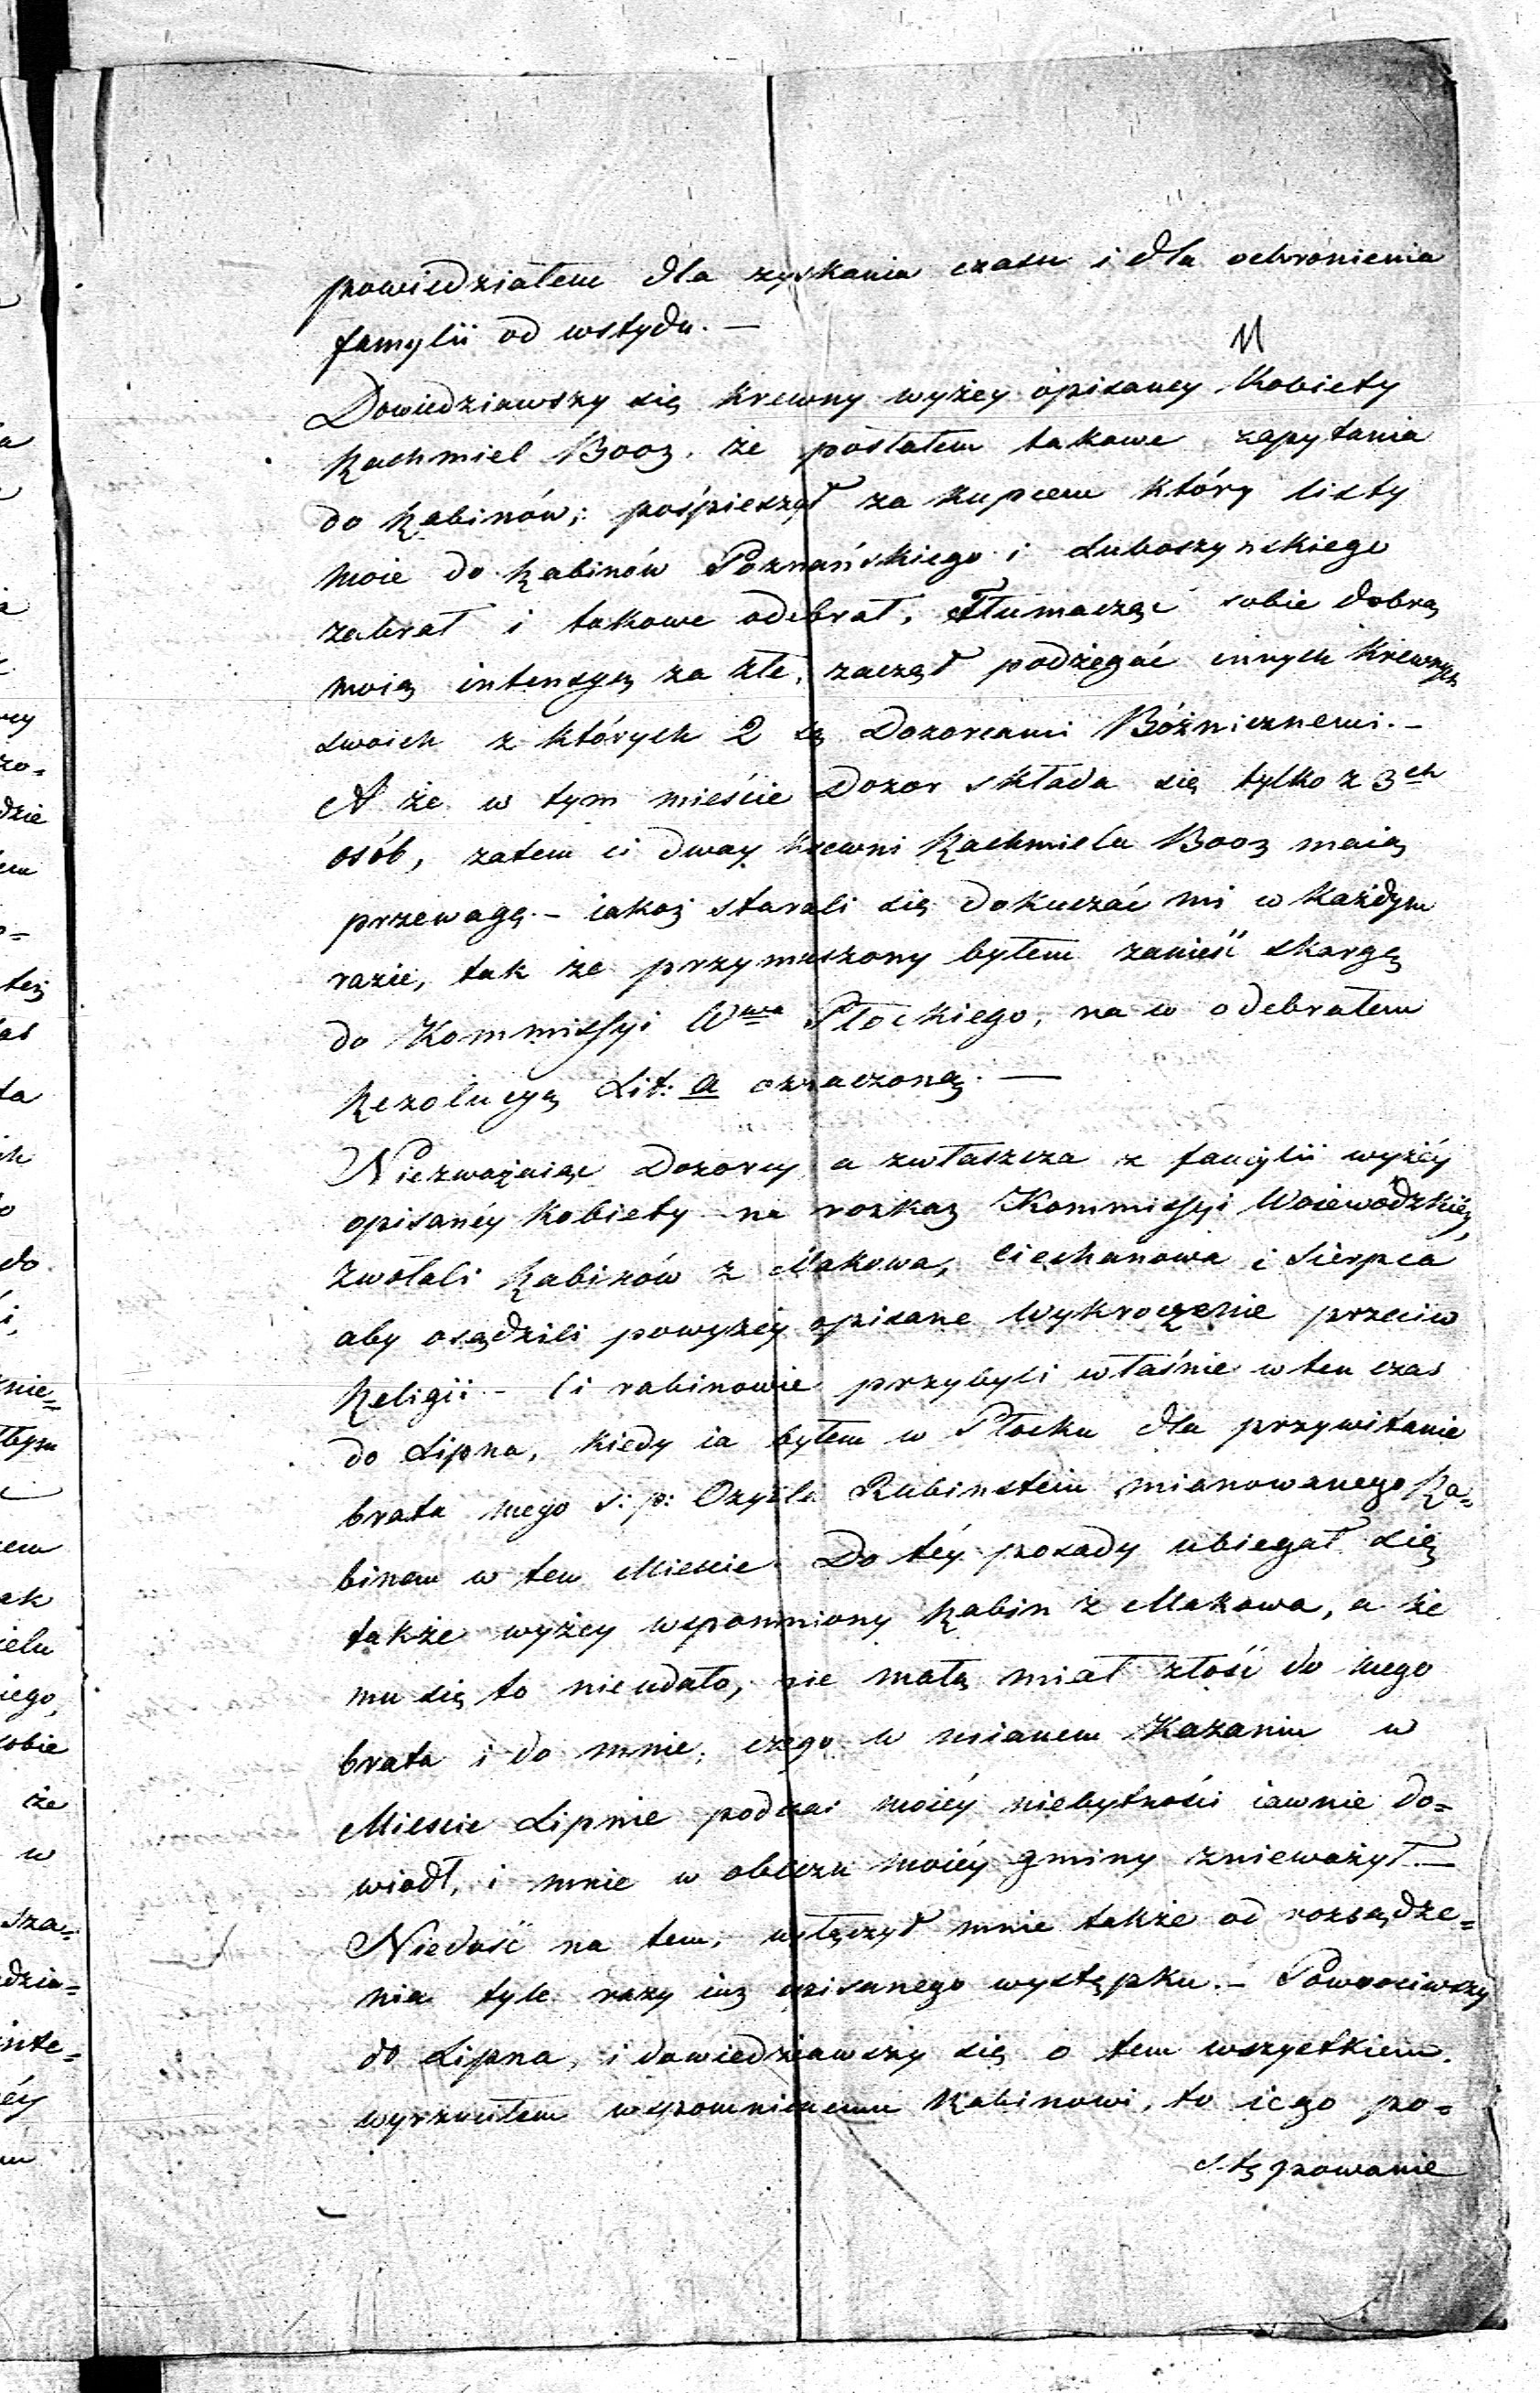 powiedziałem dla zyskania czasu i dla ochronienia
familii od wstydu. —
Dowiedziawszy się krewny wyżey opisaney Kobiety
Rachmiel Booz, że posłałem takowe zapytania
do Rabinów; pośpieszył za kupcem który listy
moie do Rabinów Poznańskiego i Luboszynskiego
zabrał i takowe odebrał, Tłumacząc sobie dobrą
moią intensyą za złe, zaczął podżegać innych krewnych
swoich z których 2 są Dozorcami Bóżnicznemi. —
A że w tym mieście Dozor składa się tylko z 3ch
osób, zatem ci dway krewni Rachmiela Booz maią
przewagę — iakoż starali się dokuczać mi w każdym
razie, tak że przymuszony byłem zanieść skargę
do Kommissyi Wwa Płockiego, na w odebrałem
Rezolucyą Lit: a oznaczoną. —
Niezważaiąc Dozorcy a zwłaszcza z familii wyżéy
opisanéy kobiety na rozkaz Kommissyi Woiewódzkiéy,
zwołali Rabinów z Makowa, Ciechanowa i Sierpca
aby osądzili powyżéy opisane wykroczenie przeciw
Religii — Ci rabinowie przybyli właśnie w ten czas
do Lipna, kiedy ia byłem w Płocku dla przywitanie
brata mego ś: p: Rubinstein mianowanego Ra=
binem w tem Mieście. Do téy posady ubiegał się
także wyżey wspomniony Rabin z Makowa, a że
mu się to nieudało, nie małą miał złość do mego
brata i do mnie, czego w mianem Kazaniu w
Mieście Lipnie podczas moiéy niebytności iawnie do=
wiódł, i mnie w obliczu moiéy gminy znieważył. —
Niedość na tem, wyłączył mnie także od rozsądze=
nia tyle razy iuż opisanego występku. — Powróciwszy
do Lipna, i dowiedziawszy się o tem wszystkiem,
wyrzuciłem wspomnionemu Rabinowi, to iego po=
stępowanie